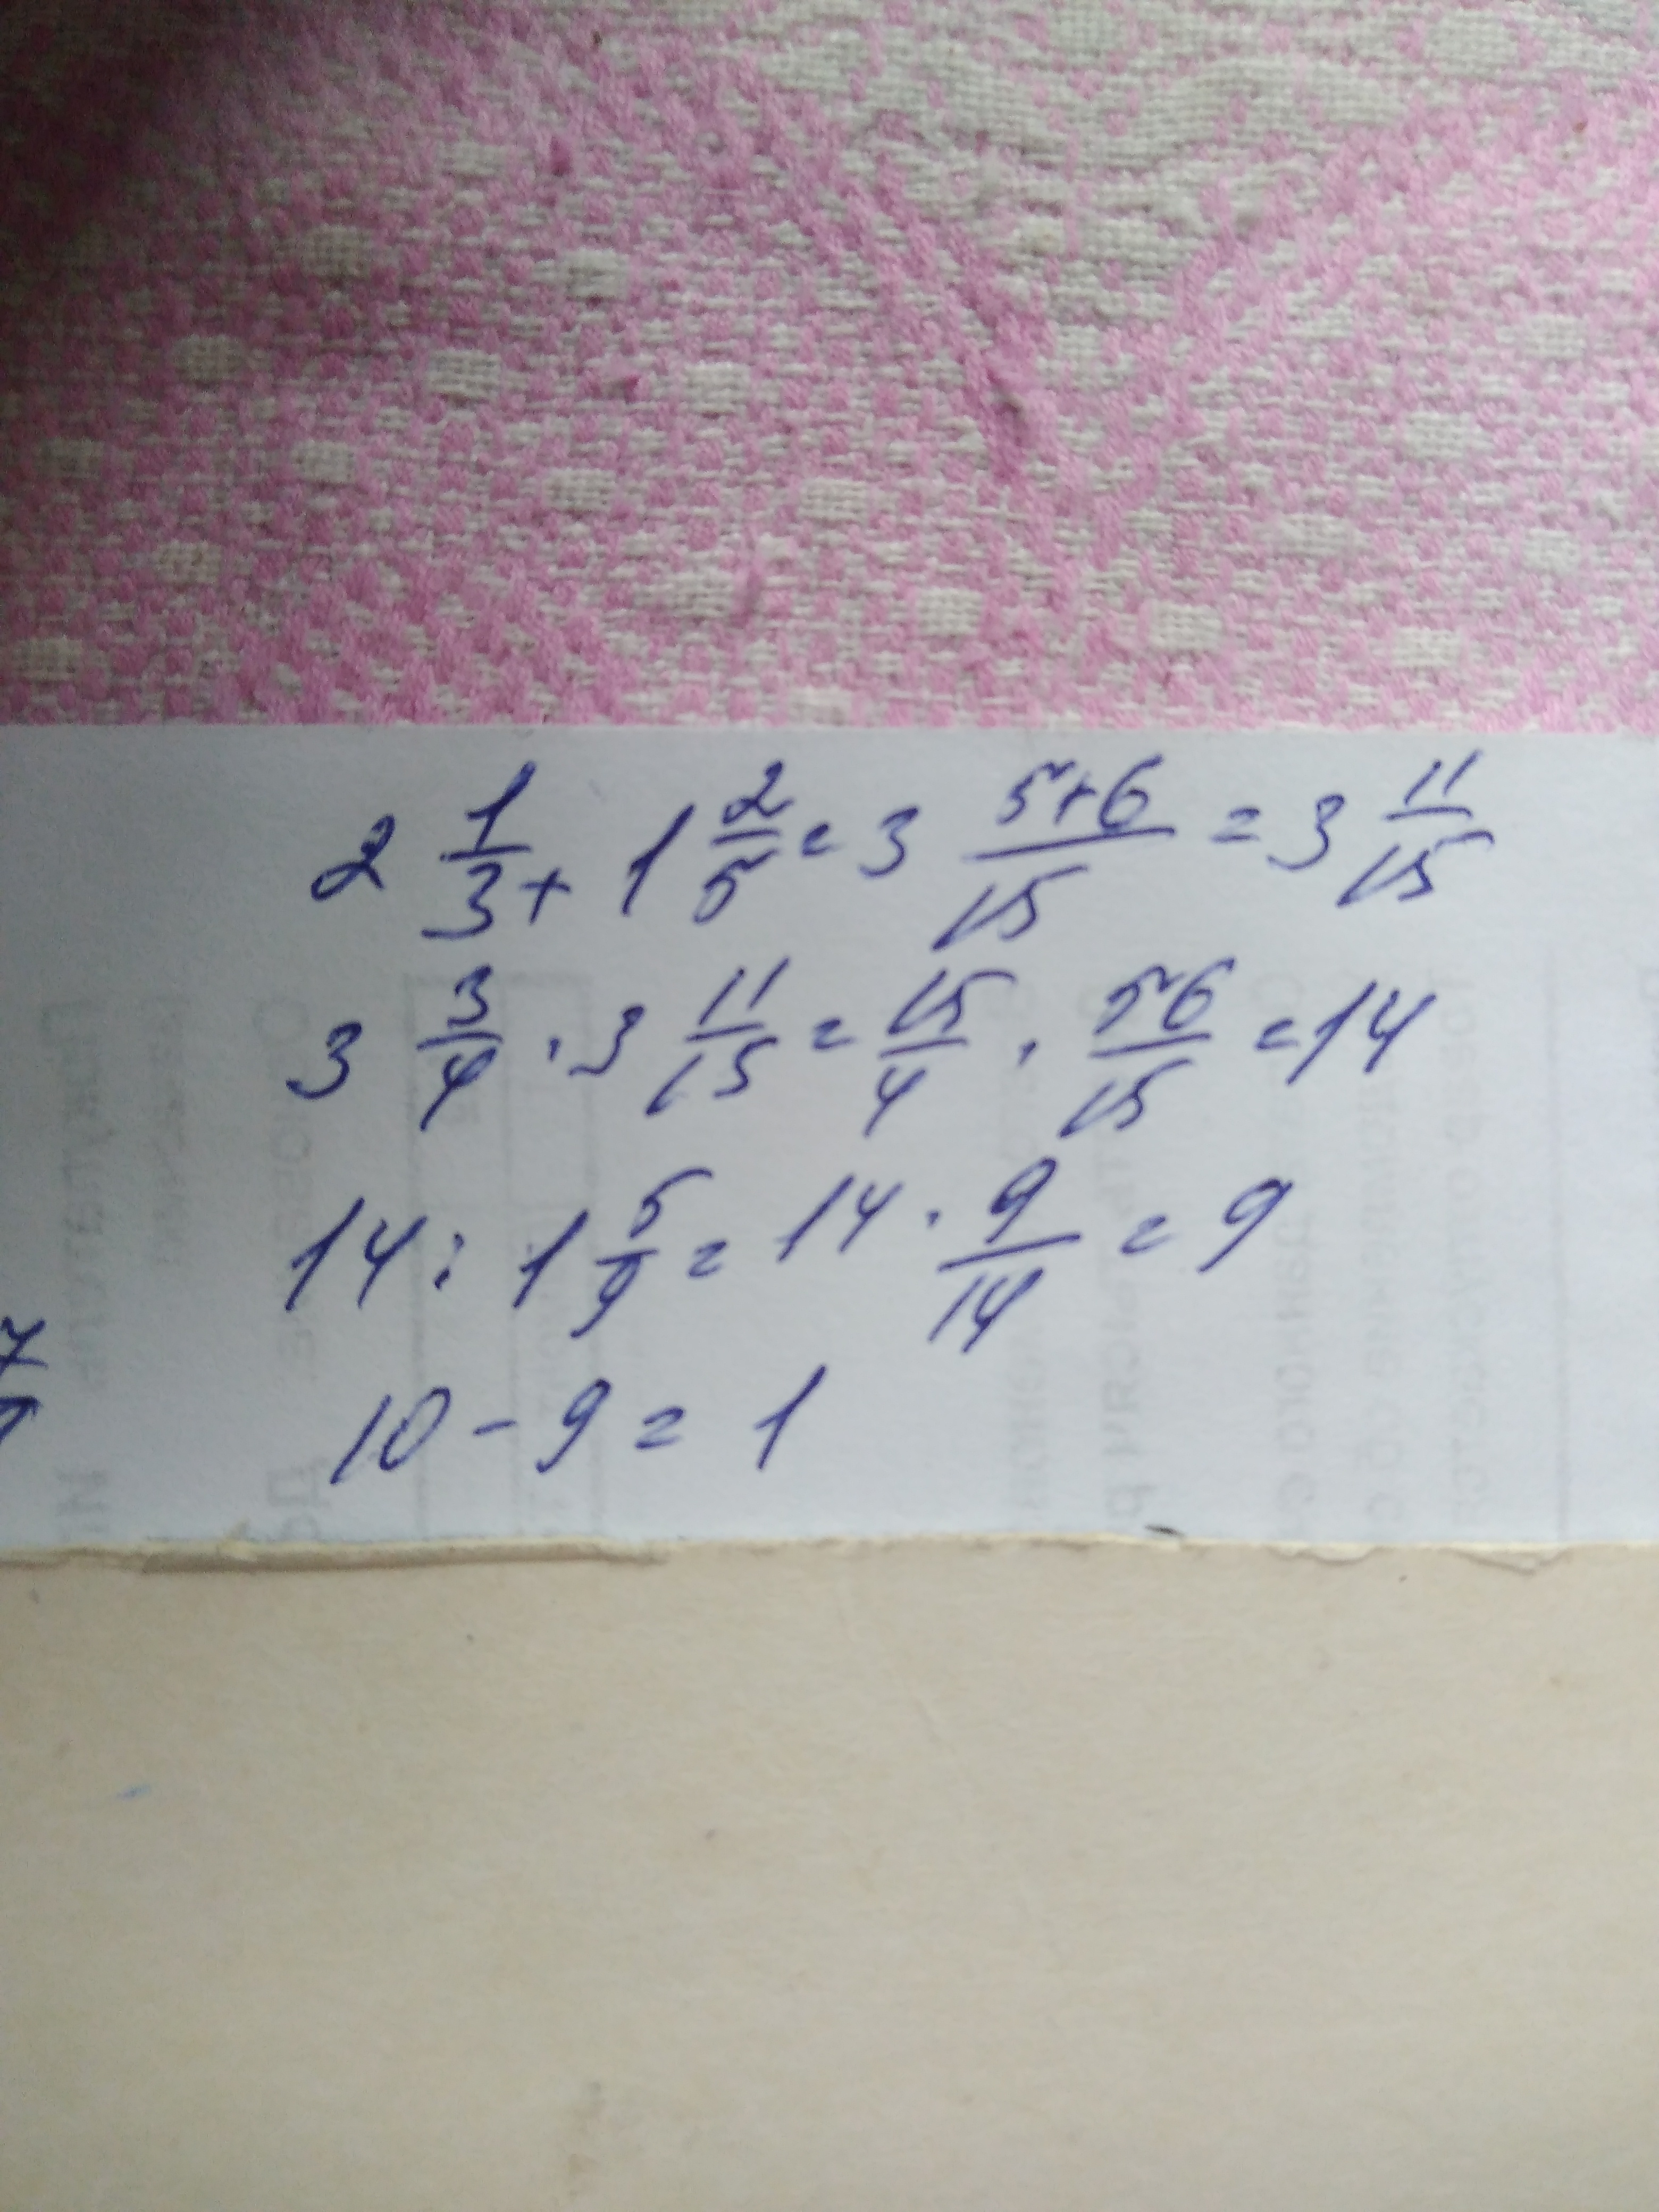 2 1/3 + 1 2/5 = 3 (5+6)/15 = 3 11/15
3 3/4 · 3 11/15 = 15/4 · 56/15 = 14
14 : 1 5/9 = 14 · 9/14 = 9
10 - 9 = 1